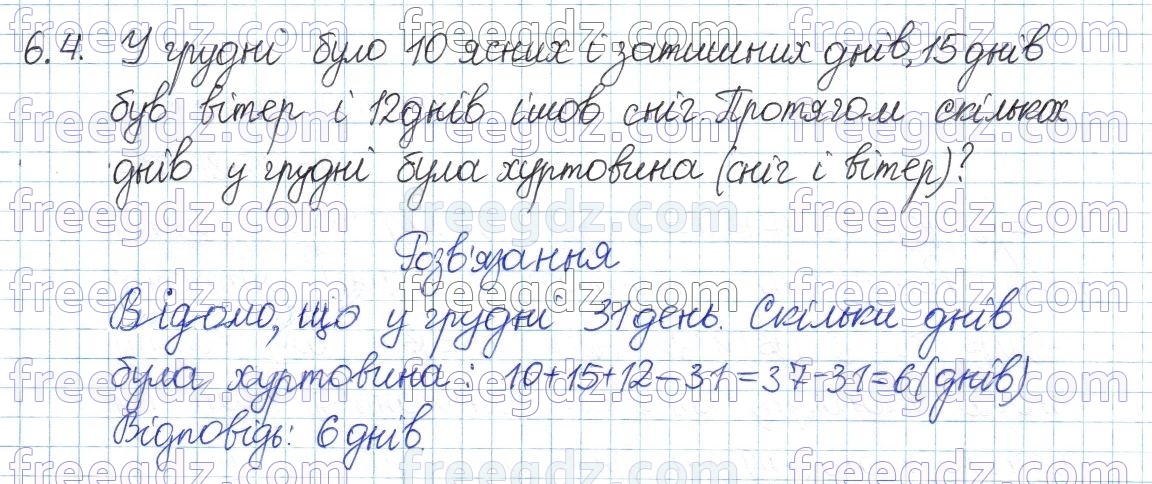 6.4. У грудні було 10 ясних і затишних днів, 15 днів
був вітер і 12 днів ішов сніг. Протягом скількох
днів у грудні була хуртовина (сніг і вітер)?
Розв'язання
Відомо, що у грудні 31 день. Скільки днів
була хуртовина: 10+15+12-31=37-31=6(днів)
Відповідь: 6 днів.
freegdz.com